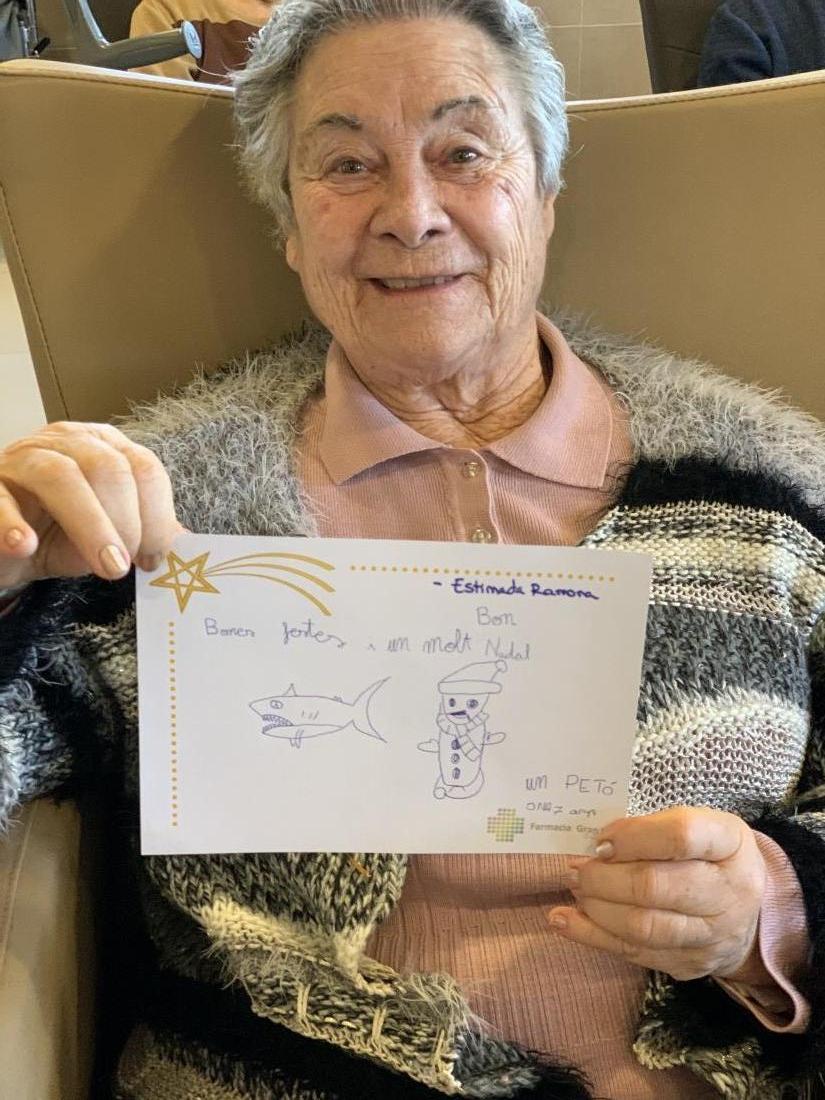 - Estimada Ramona
Bon
Bones festes i un molt Nadal
un PETÓ
ONA 7 anys
Farmacia Gran